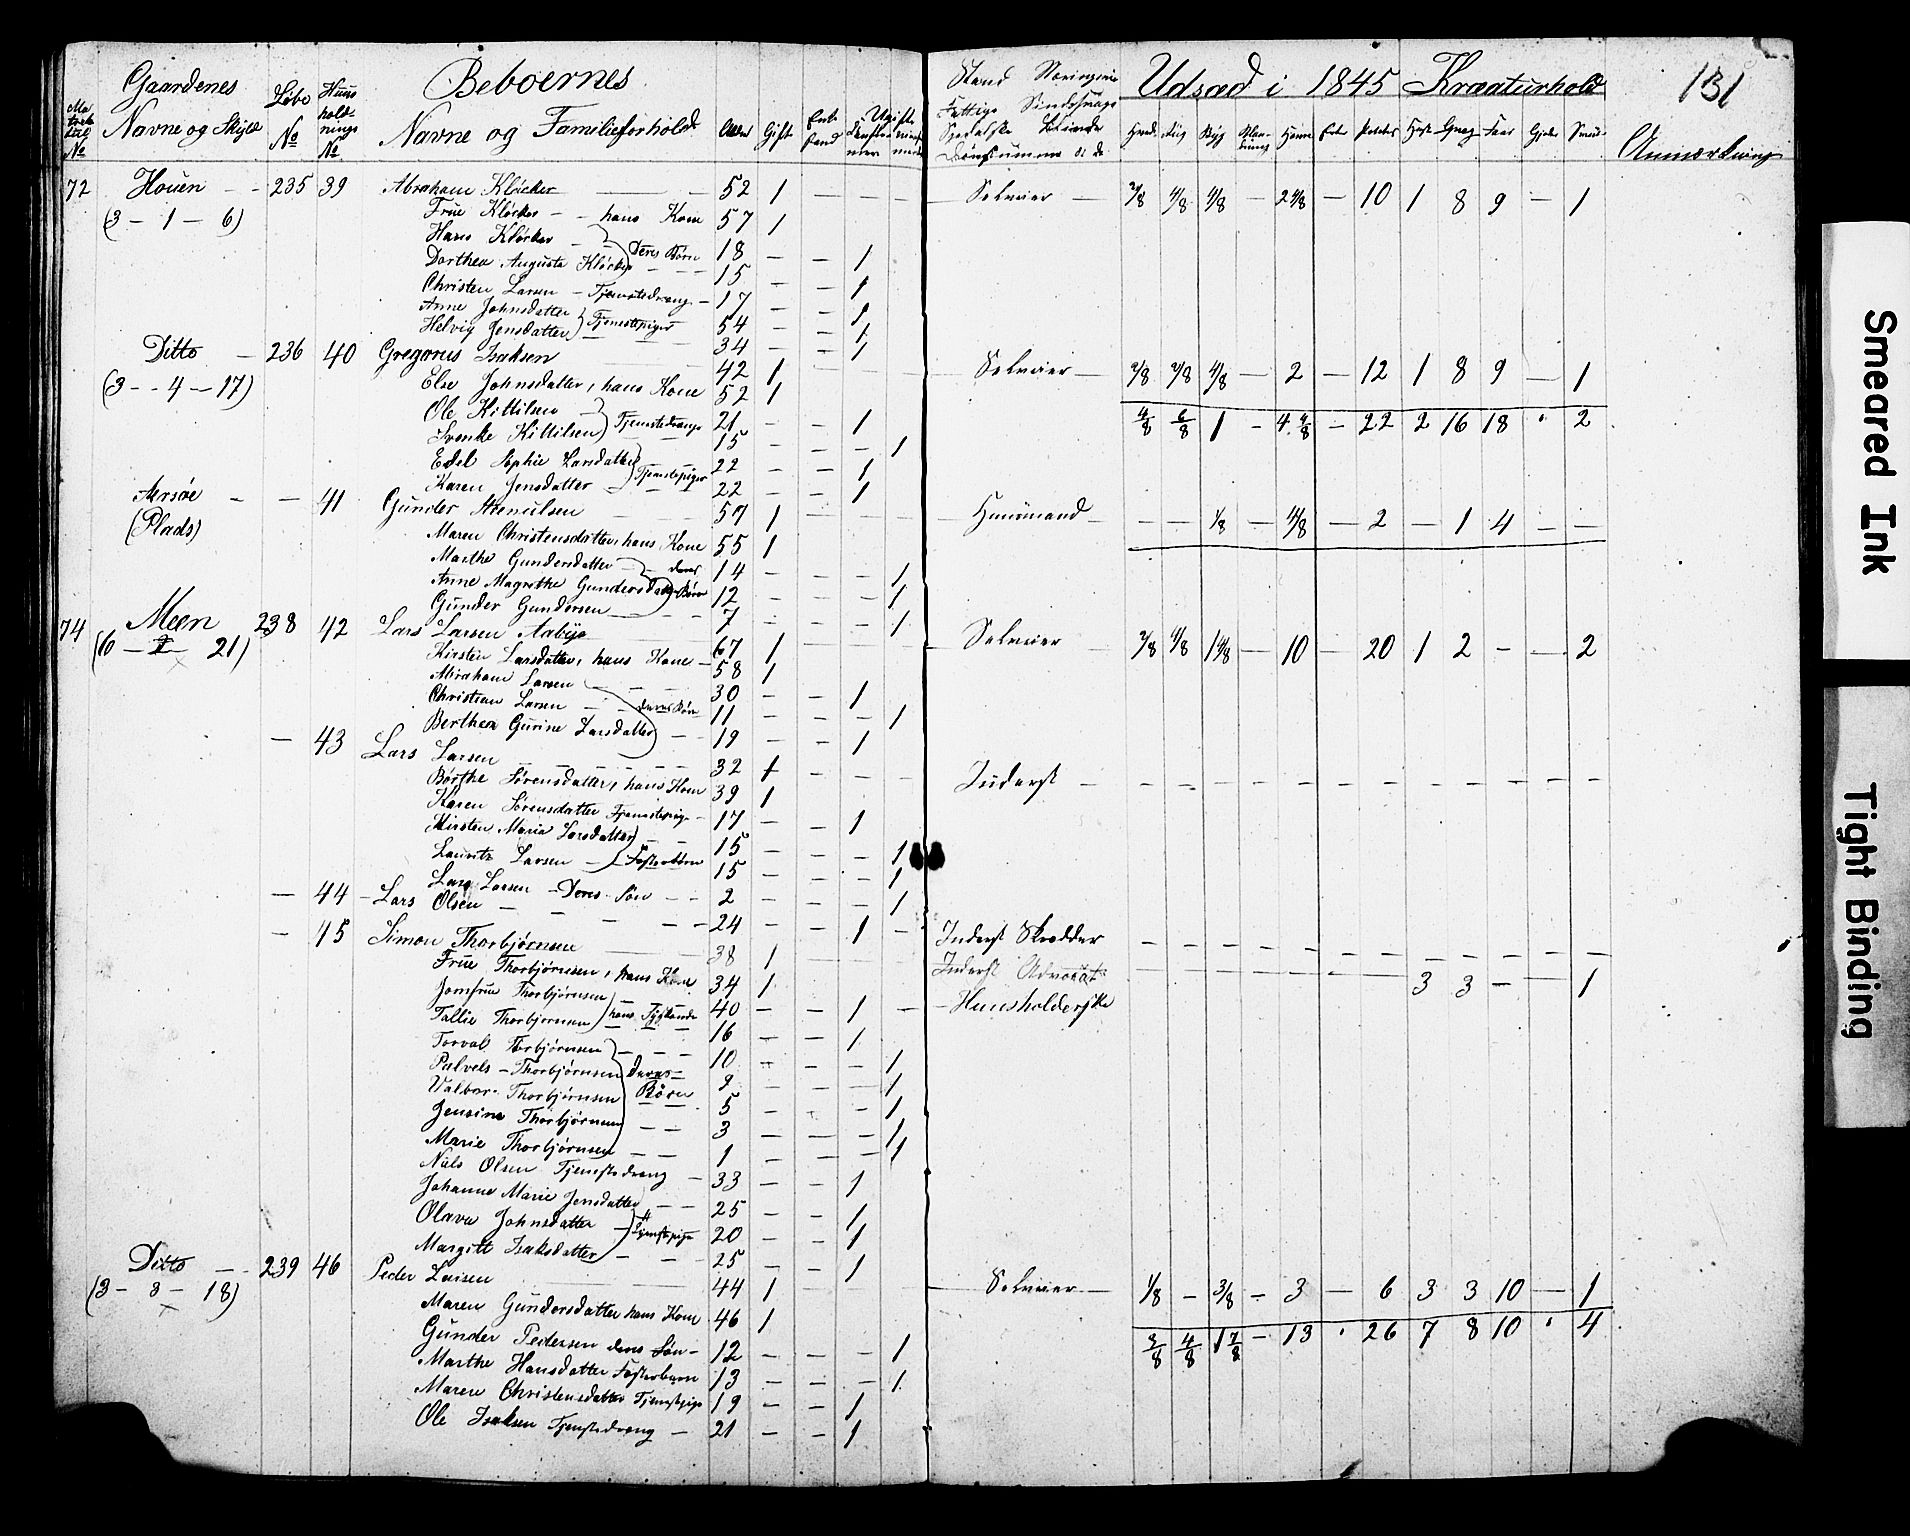 Gaardenes
Navne og Skyld
Løbe No
Huusholdnings No
Beboernes
Navne og Familieforhold
Alder Gift
Udsæd i 1845 Kreaturhold
131
Anmærkning
72 Houen - - 235 39 Abraham Kløcker 52 1 Selveier 2/8 4/8 4/8 - 2 4/8 - 10 1 8 9 - 1
(3 - 1 - 6) Frue Kløcker - - hans Kone 57 1
Hans Kløcker - - Deres Børn 18 - - 1
Dorthea Augusta Kløcker 15 - - 1
Christen Larsen - Tjenestedreng - 17 - - 1
Anne Johnsdatter Tjenestepiger 54 - - 1
Helvig Jensdatter 34 - - 1
Ditto - 236 40 Gregorius Isaksen 42 1 Selveier - 2/8 2/8 4/8 - 2 - 12 1 8 9 - 1
(3 - - 4 - 17) Else Johnsdatter, hans Kone 52 1
4/8 6/8 1 - 4 4/8 - 22 2 16 18 " 2
Ole Kittilsen - Tjenestedrenge 21 - - 1
Svenke Kittilsen 15 - - - 1
Edel Sophie Larsdatter Tjenestepiger 22 - - 1
Karen Jensdatter 22 - - 1
- - 41 Gunder 57 1 Huusmand - - - 1/8 - 4/8 - 2 - 1 4 - -
(Plads) Maren Christensdatter, hans Kone 55 1
Marthe Gundersdatter - - deres 14 - - - 1
Anne Magrethe Gundersdatter Børn 12 - - - 1
Gunder Gundersen 7 - - - 1
74 Meen 238 42 Lars Larsen Aabye 67 1 Selveier 2/8 4/8 1 4/8 - 10 - 20 1 2 - - 2
(6 - 2 - 21) Kirsten Larsdatter, hans Kone - 58 1
Abraham Larsen 30 - - 1
Christian Larsen - - deres Børn 11 - - - 1
Berthea Gurine Larsdatter 19 - - 1
- 43 Lars Larsen 32 1 Inderst
Børthe Sørensdatter, hans Kone 39 1
Karen Sørensdatter Tjenestepige - 17 - - 1
Kirsten Maria Larsdatter 15 - - - 1
Lauritz Larsen - Fosterbørn 15 - - - 1
Lars Larsen - Deres Søn - - 2 - - - 1
- 44 - Lars Olsen - - - - 24 - - 1 - Inderst Skrædder
- 45 Simon Thorbjørnsen 38 1 Inderst Advocat 3 3 - - 1
Frue Thorbjørnsen, hans Kone 34 1
Jomfrue Thorbjørnsen hans Sødskende 40 - - 1 - Huusholderske
Tallie Thorbjørnsen 16 - - 1
Torval Thorbjørnsen 10 - - - 1
Palvels - Thorbjørnsen Deres 9 - - - 1
Valbor Thorbjørnsen Børn 5 - - - 1
Jensine Thorbjørnsen 3 - - - 1
Marie Thorbjørnsen 1 - - - 1
Niels Olsen Tjenestedreng - 33 - - 1
Johanne Marie Jensdatter 25 - - 1
Olava Johnsdatter - Tjenestepige 20 - - 1
Margitt Isaksdatter 25 - - 1
Ditto - - 239 46 Peder Larsen 44 1 Selveier - 1/8 - 3/8 - 3 - 6 3 3 10 - 1
(3 - 3 - 18) Maren Gundersdatter hans Kone 46 1
3/8 4/8 1 7/8 - 13 " 26 7 8 10 " 4
Gunder Pedersen deres Søn - 12 - - - 1
Marthe Hansdatter Fosterbarn 13 - - - 1
Maren Christensdatter Tjenestepige 19 - - 1
Ole Isaksen Tjenestedreng - 21 - - 1
Smeared Ink
Tight Binding